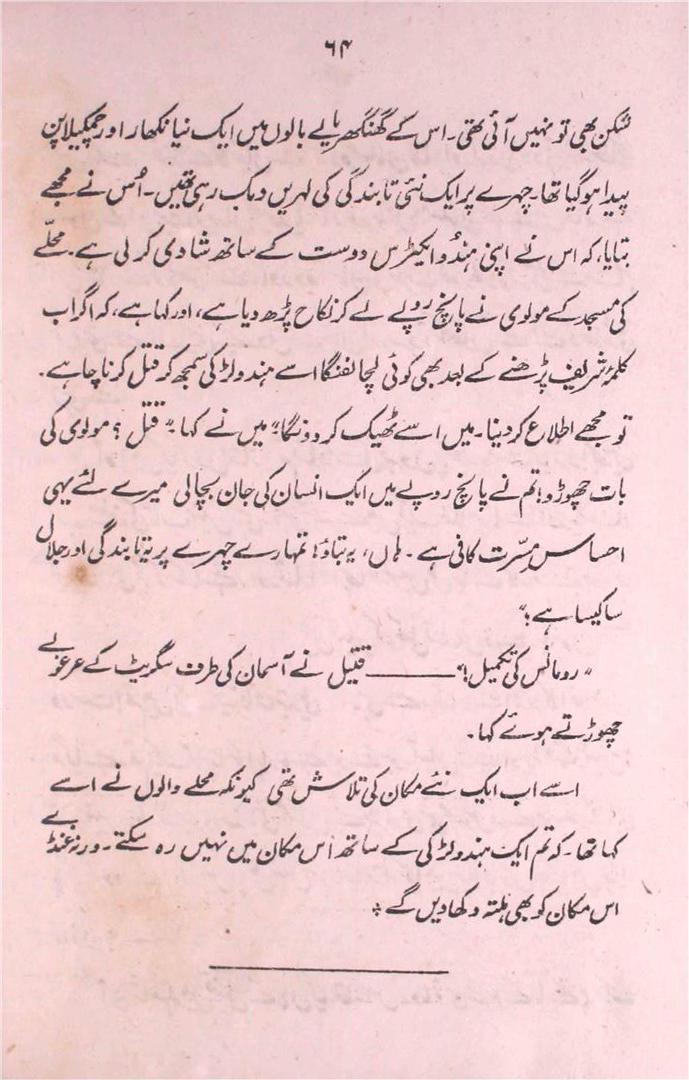 ۶۴
شکن بھی تو نہیں آئی تھی۔ اس کے گھنگھریالے بالوں میں ایک نیا نکھار اور چمکیلا پن
پیدا ہو گیا تھا۔ چہرے پر ایک نئی تابندگی کی لہریں دمک رہی تھیں۔ اُس نے مجھے
بتایا، کہ اس نے اپنی ہندُو ایکٹرس دوست کے ساتھ شادی کر لی ہے۔ محلّے
کی مسجد کے مولوی نے پانچ روپے لے کر نکاح پڑھ دیا ہے، اور کہا ہے، کہ اگر اب
کلمۂ شریف پڑھنے کے بعد بھی کوئی لُچا لفنگا اسے ہندو لڑکی سمجھ کر قتل کرنا چاہے۔
تو مجھے اطلاع کر دینا۔ میں اسے ٹھیک کر دونگا۔" میں نے کہا۔ "قتل؟ مولوی کی
بات چھوڑو! تم نے پانچ روپے میں ایک انسان کی جان بچالی میرے لئے یہی
احساسِ مسّرت کافی ہے۔ ہاں، یہ بتاؤ! تمہارے چہرے پر یہ تابندگی اور جلال
سا کیسا ہے؟"
"رومانس کی تکمیل!" ـــــــــ قتیل نے آسمان کی طرف سگریٹ کے مرغولے
چھوڑتے ہوئے کہا۔
اسے اب ایک نئے مکان کی تلاش تھی کیونکہ محلے والوں نے اسے
کہا تھا۔ کہ تم ایک ہندو لڑکی کے ساتھ اس مکان میں نہیں رہ سکتے۔ ورنہ غنڈے
اس مکان کو بھی ہلتہ دکھا دیں گے ۔